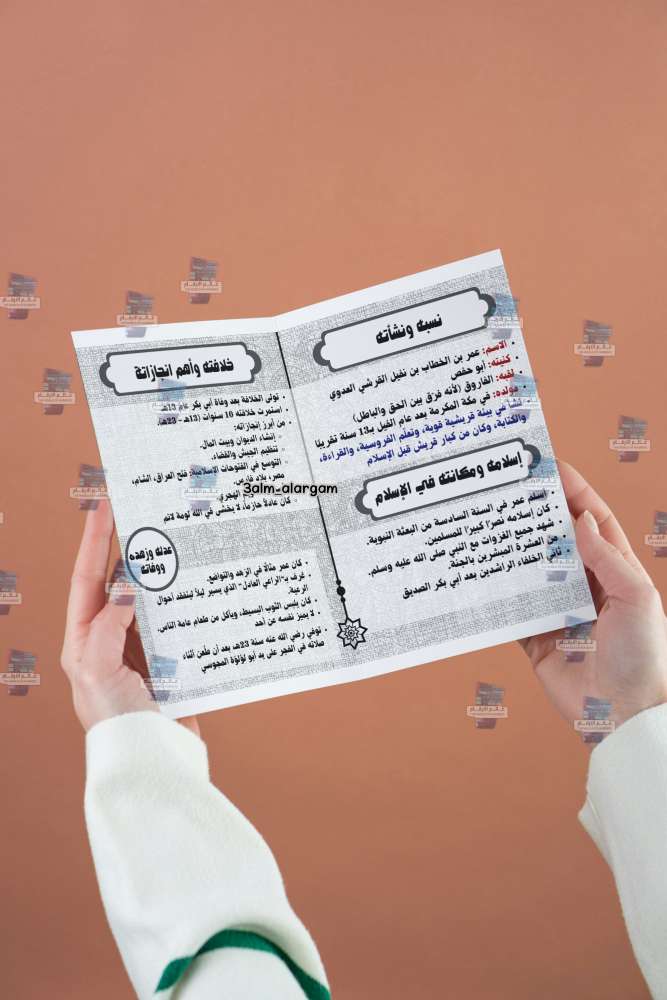 نسبه ونشأته
• الاسم: عمر بن الخطاب بن نفيل القرشي العدوي
• كنيته: أبو حفص
• لقبه: الفاروق (لأنه فرّق بين الحق والباطل)
• مولده: في مكة المكرمة بعد عام الفيل بـ13 سنة تقريبًا
في بيئة قريشية قوية، وتعلّم الفروسية، والقراءة،
والكتابة، وكان من كبار قريش قبل الإسلام
إسلامه ومكانته في الإسلام
• أسلم عمر في السنة السادسة من البعثة النبوية.
• كان إسلامه نصرًا كبيرًا للمسلمين.
• شهد جميع الغزوات مع النبي صلى الله عليه وسلم.
• من العشرة المبشرين بالجنة.
• ثاني الخلفاء الراشدين بعد أبي بكر الصديق
خلافته وأهم انجازاتة
• تولى الخلافة بعد وفاة أبي بكر عام 13هـ
• استمرت خلافته 10 سنوات (13هـ – 23هـ).
• من أبرز إنجازاته:
○ إنشاء الديوان وبيت المال.
○ تنظيم الجيش والقضاء.
○ التوسع في الفتوحات الإسلامية: فتح العراق، الشام،
مصر، بلاد فارس.
الهجري.
○ كان عادلًا حازمًا، لا يخشى في الله لومة لائم
عدله وزهده
ووفاته
• كان عمر مثالًا في الزهد والتواضع.
• عُرف بـ"الراعي العادل" الذي يسير ليلًا ليتفقد أحوال
الرعية.
• كان يلبس الثوب البسيط، ويأكل من طعام عامة الناس.
• لا يميز نفسه عن أحد
• توفي رضي الله عنه سنة 23هـ، بعد أن طُعن أثناء
صلاته في الفجر على يد أبو لؤلؤة المجوسي
3alm_alargam
عالم الارقام